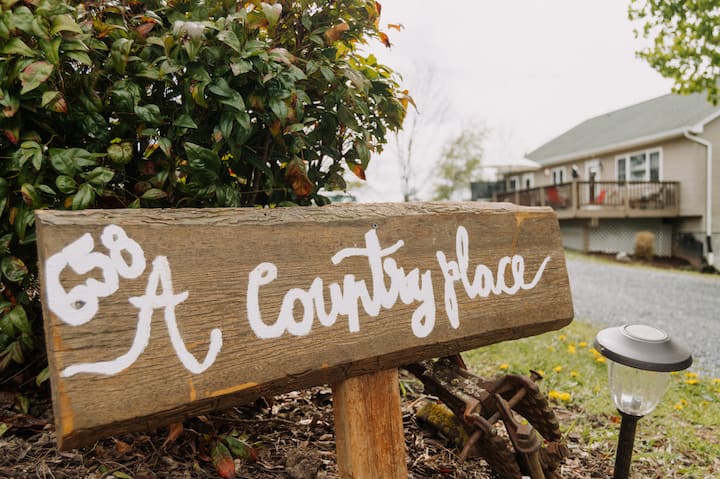 638
A Country place